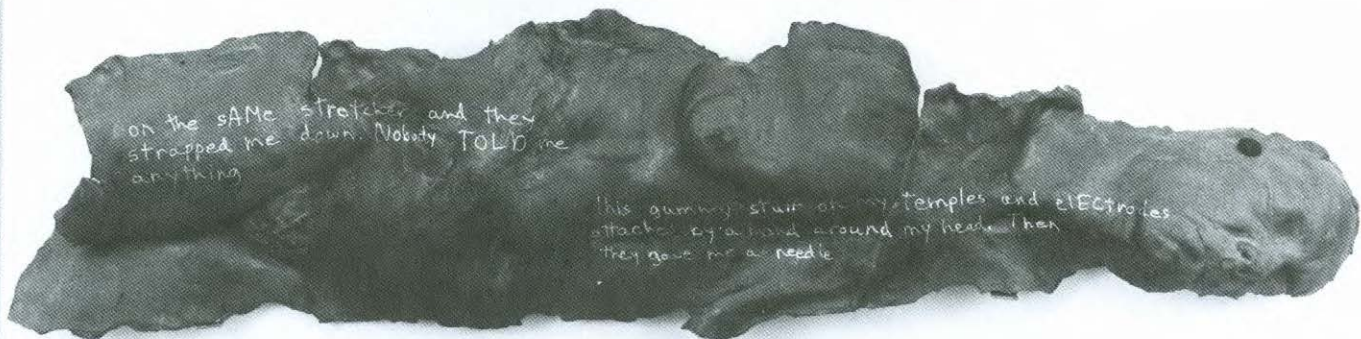 on the sAMe stretcher and they
strapped me down. Nobody TOLD me
anything
this gummy stuff on my temples and elECtrodes
attached by a band around my head. Then
they gave me a needle